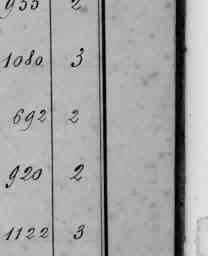 933 2
1080 3
692 2
920 2
1122 3